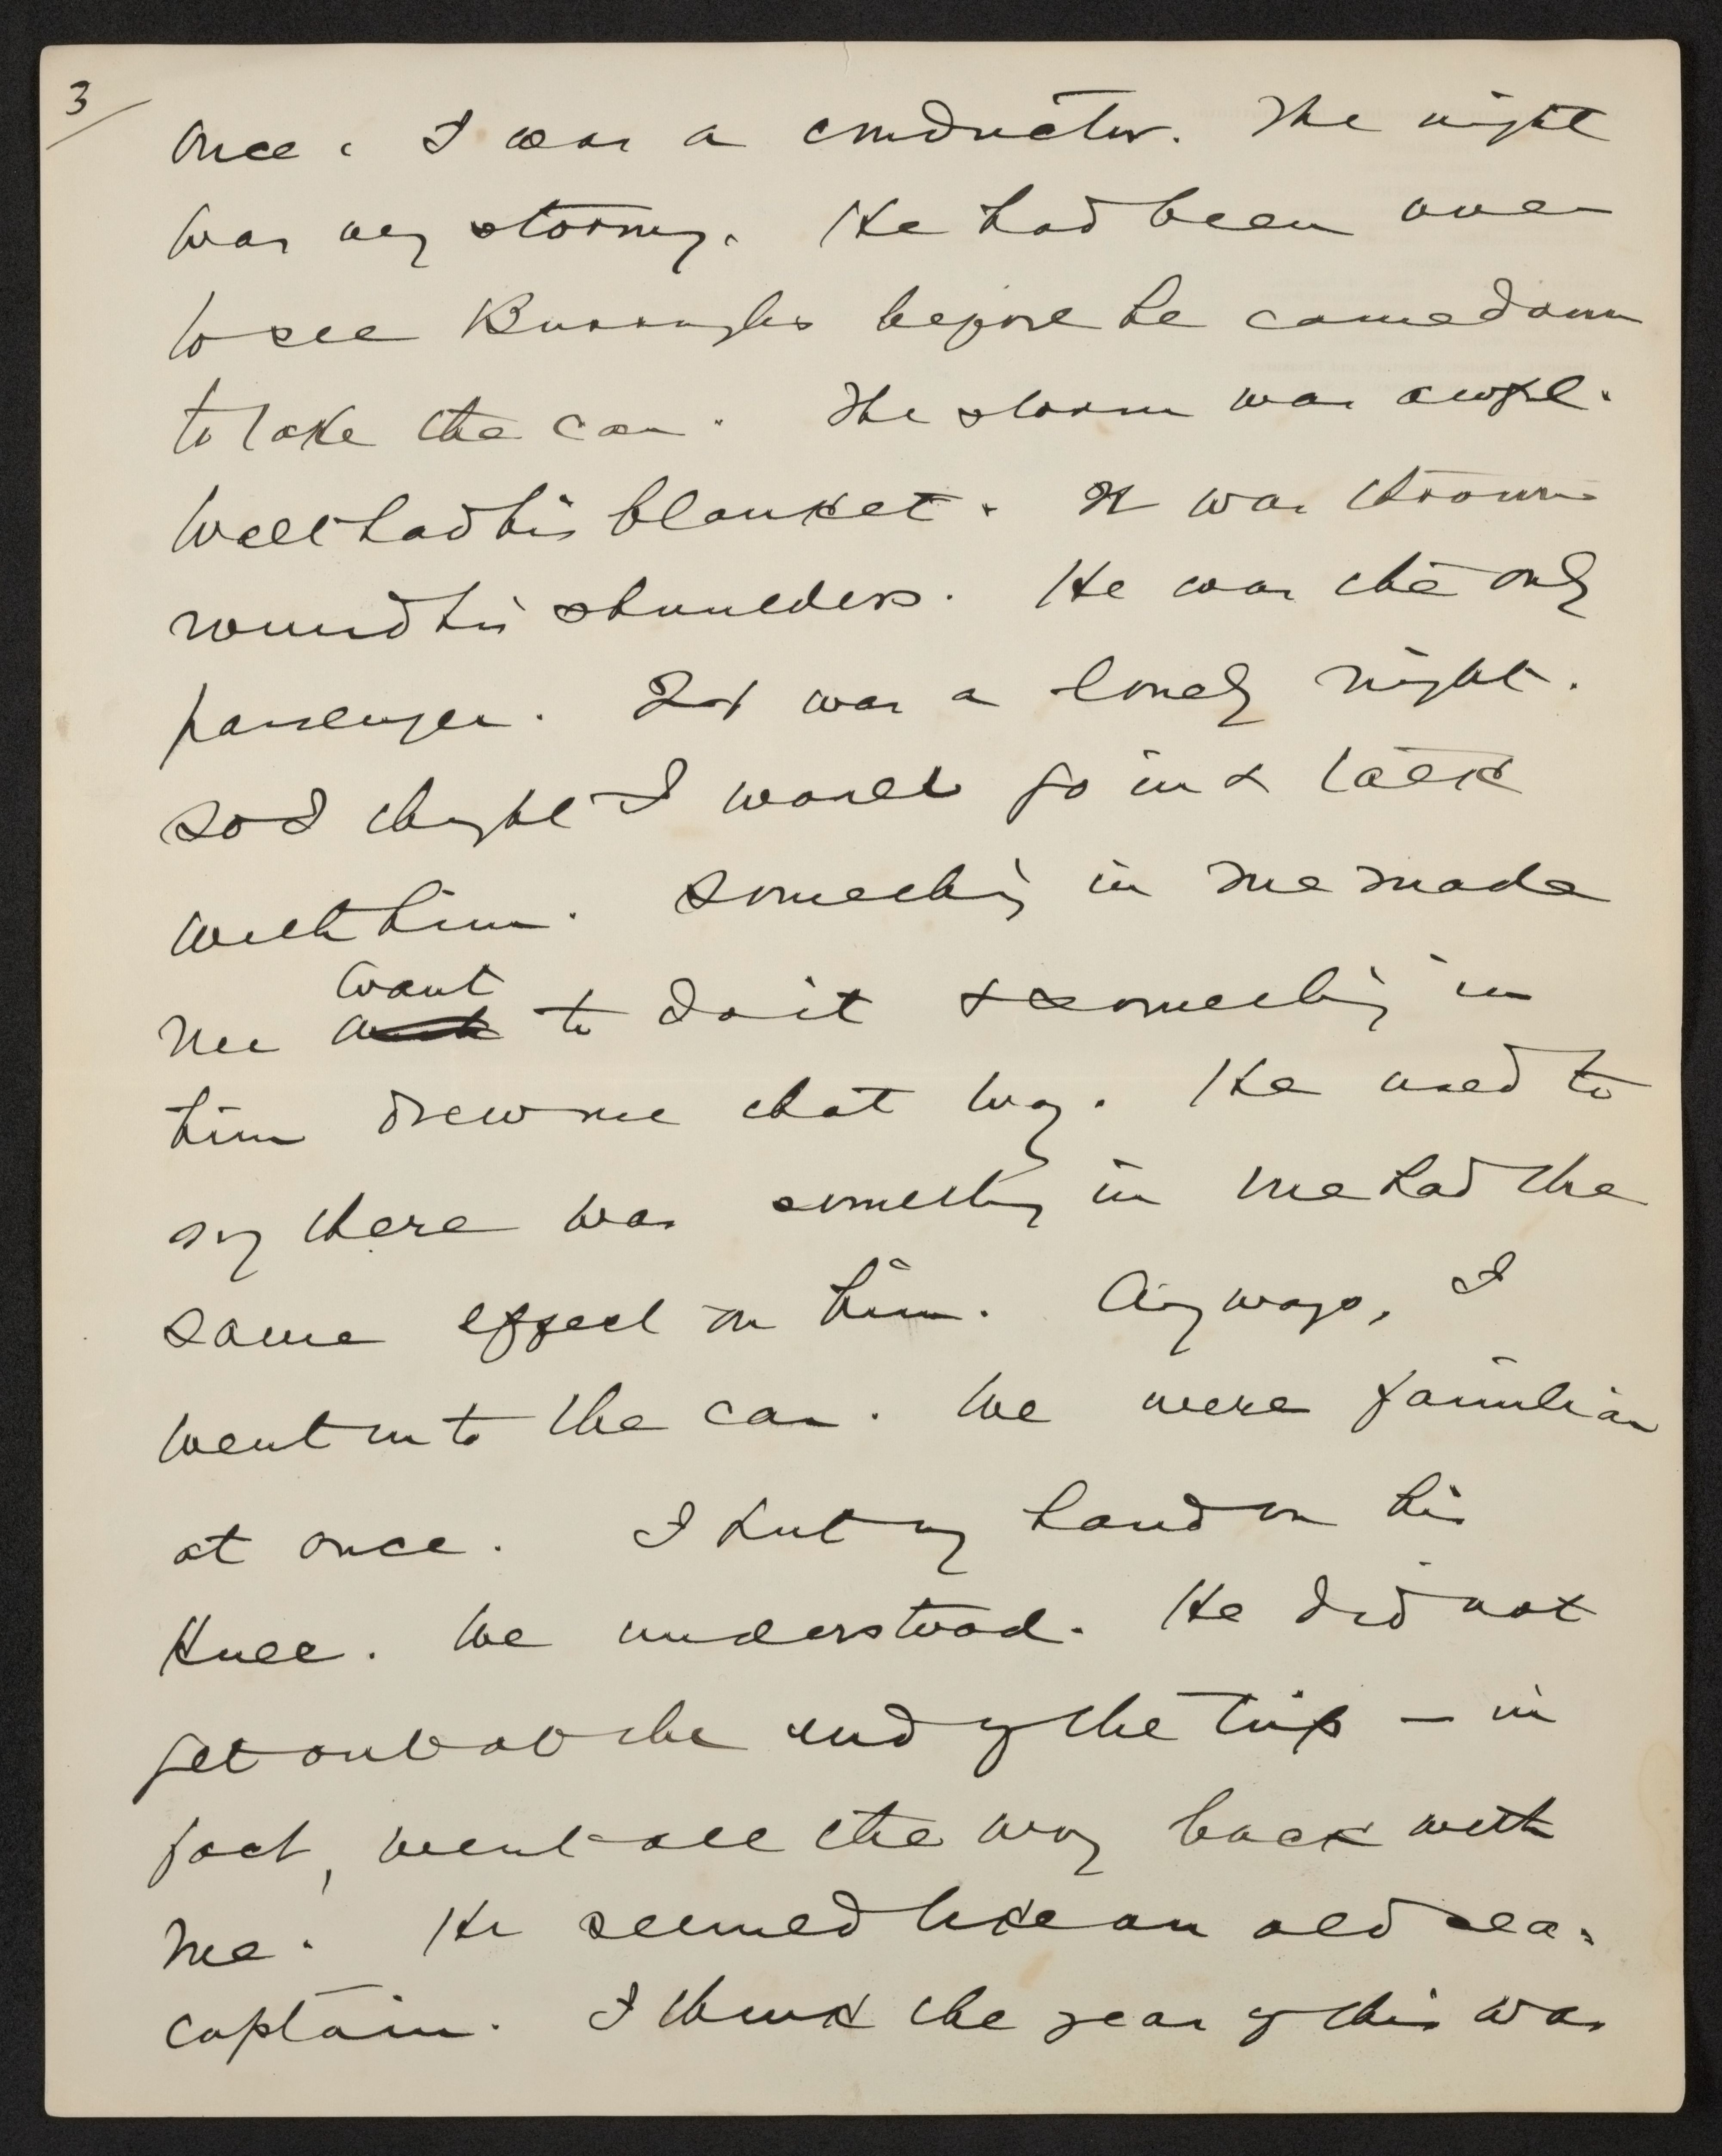 3
once. I was a conductor. The night
was very stormy. He had been over
to see Burroughs before he came down
to take the car. The storm was awful.
Walt had his blanket. It was thrown
round his shoulders. He was the only
passenger. It was a lonely night.
So I thought I would go in & talk
with him. Something in me made
me want to do it & something in
him drew me that way. He used to
say there was something in me had the
same effect on him. Anyways, I
went into the car. We were familiar
at once. I put my hand on his
knee. We understood. He did not
get out at the end of the trip — in
fact, went all the way back with
me. He seemed like an old sea-
captain. I think the year of this was